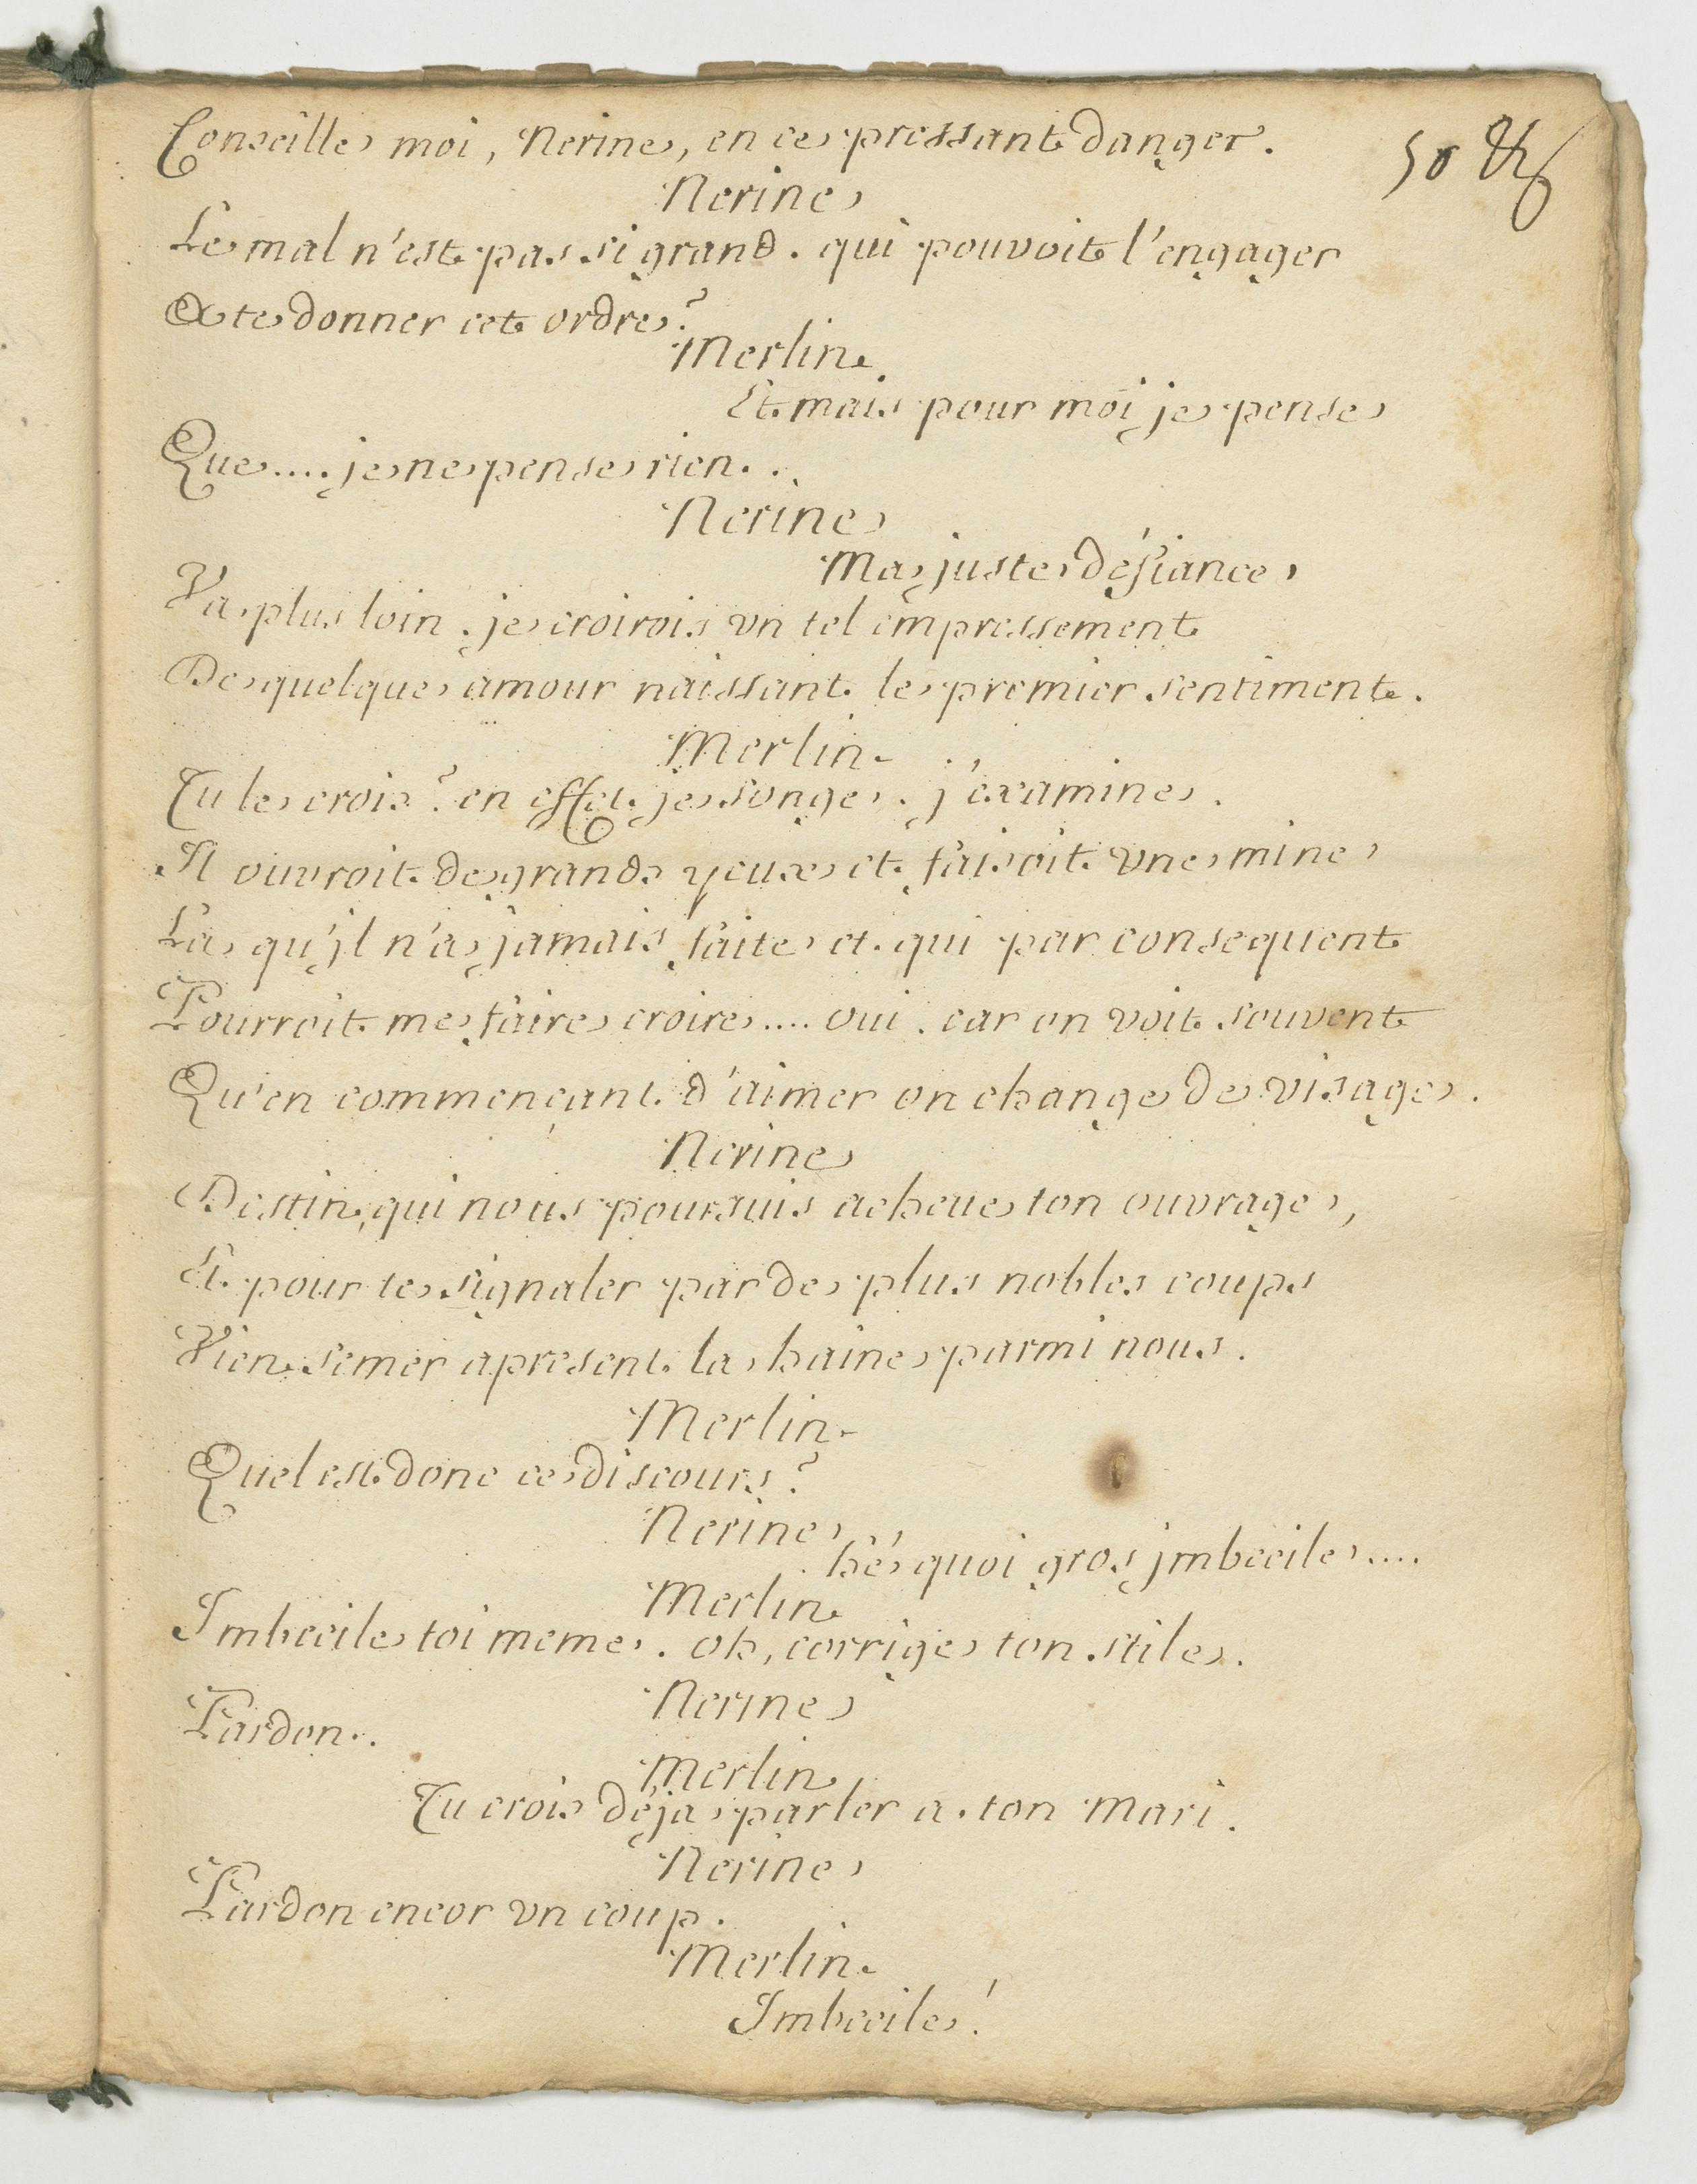 Conseille moi, Nerine, en ce pressant danger.
50
Nerine
Le mal n'est pas si grand. qui pouvoit l'engager
A te donner cet ordre?
Merlin
Et mais pour moi je pense
Que.... je ne pense rien..
Nerine
Ma juste défiance
Va plus loin. je croirois vn tel empressement
De quelque amour naissant le premier sentiment.
Merlin
Tu le crois? en effet je songe. j'examine.
Il ouvroit de grands yeux et faisoit vne mine
La qu'jl n'a jamais faite et qui par consequent
Pourroit me faire croire.... oui. car on voit souvent
Qu'en commençant d'aimer on change de visage.
Nerine
Destin, qui nous poursuis acheue ton ouvrage,
Et pour te signaler par de plus nobles coups
Vien semer apresent la haine parmi nous.
Merlin
Quel est donc ce discours?
Nerine
hé quoi gros jmbecile....
Merlin
Imbecile toi meme. oh, corrige ton stile.
Nerine
Pardon..
Merlin
Tu crois déja parler a ton mari.
Nerine
Pardon encor vn coup.
Merlin
Imbecile!